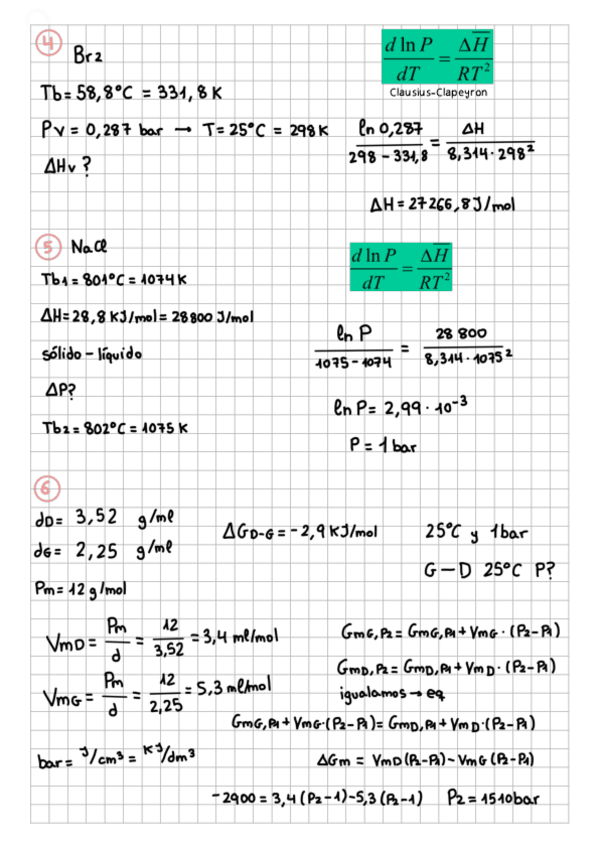 4 Br2
d ln P / dT = ΔH̅ / RT²
Clausius-Clapeyron
Tb = 58,8°C = 331,8 K
Pv = 0,287 bar → T = 25°C = 298 K
ln 0,287 / 298 - 331,8 = ΔH / 8,314 · 298²
ΔHv ?
ΔH = 27266,8 J/mol
5 NaCl
d ln P / dT = ΔH̅ / RT²
Tb1 = 801°C = 1074 K
ΔH = 28,8 KJ/mol = 28800 J/mol
ln P / 1075 - 1074 = 28 800 / 8,314 · 1075²
sólido - líquido
ΔP?
ln P = 2,99 · 10⁻³
Tb2 = 802°C = 1075 K
P = 1 bar
6
dD = 3,52 g/ml
ΔG D-G = -2,9 KJ/mol
25°C y 1 bar
dG = 2,25 g/ml
G — D 25°C P?
Pm = 12 g/mol
VmD = Pm / d = 12 / 3,52 = 3,4 ml/mol
GmG,P2 = GmG,P1 + VmG · (P2 - P1)
GmD,P2 = GmD,P1 + VmD · (P2 - P1)
VmG = Pm / d = 12 / 2,25 = 5,3 ml/mol
igualamos → eq
GmG,P1 + VmG·(P2 - P1) = GmD,P1 + VmD·(P2 - P1)
bar = J/cm³ = KJ/dm³
ΔGm = VmD (P2 - P1) - VmG (P2 - P1)
-2900 = 3,4 (P2 - 1) - 5,3 (P2 - 1) P2 = 1510 bar